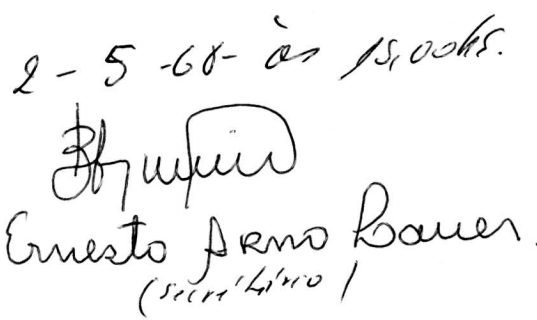 2 - 5 - 68 - às 15,00hs.
Ernesto Arno Lauer.
(secretário)